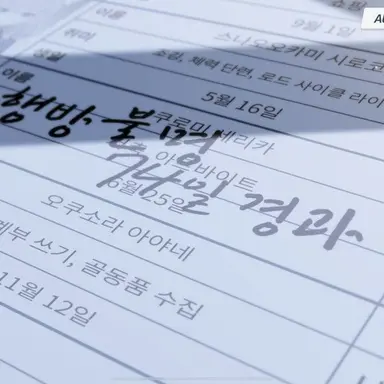 AU
9월 1일
이름
스나오오카미 시로코
취미
조깅, 체력 단련, 로드 사이클 라이
생일
5월 16일
이름
쿠로미 세리카
행방 불명
아르바이트
6월 25일
일 경과
오쿠소라 아야네
계부 쓰기, 골동품 수집
11월 12일